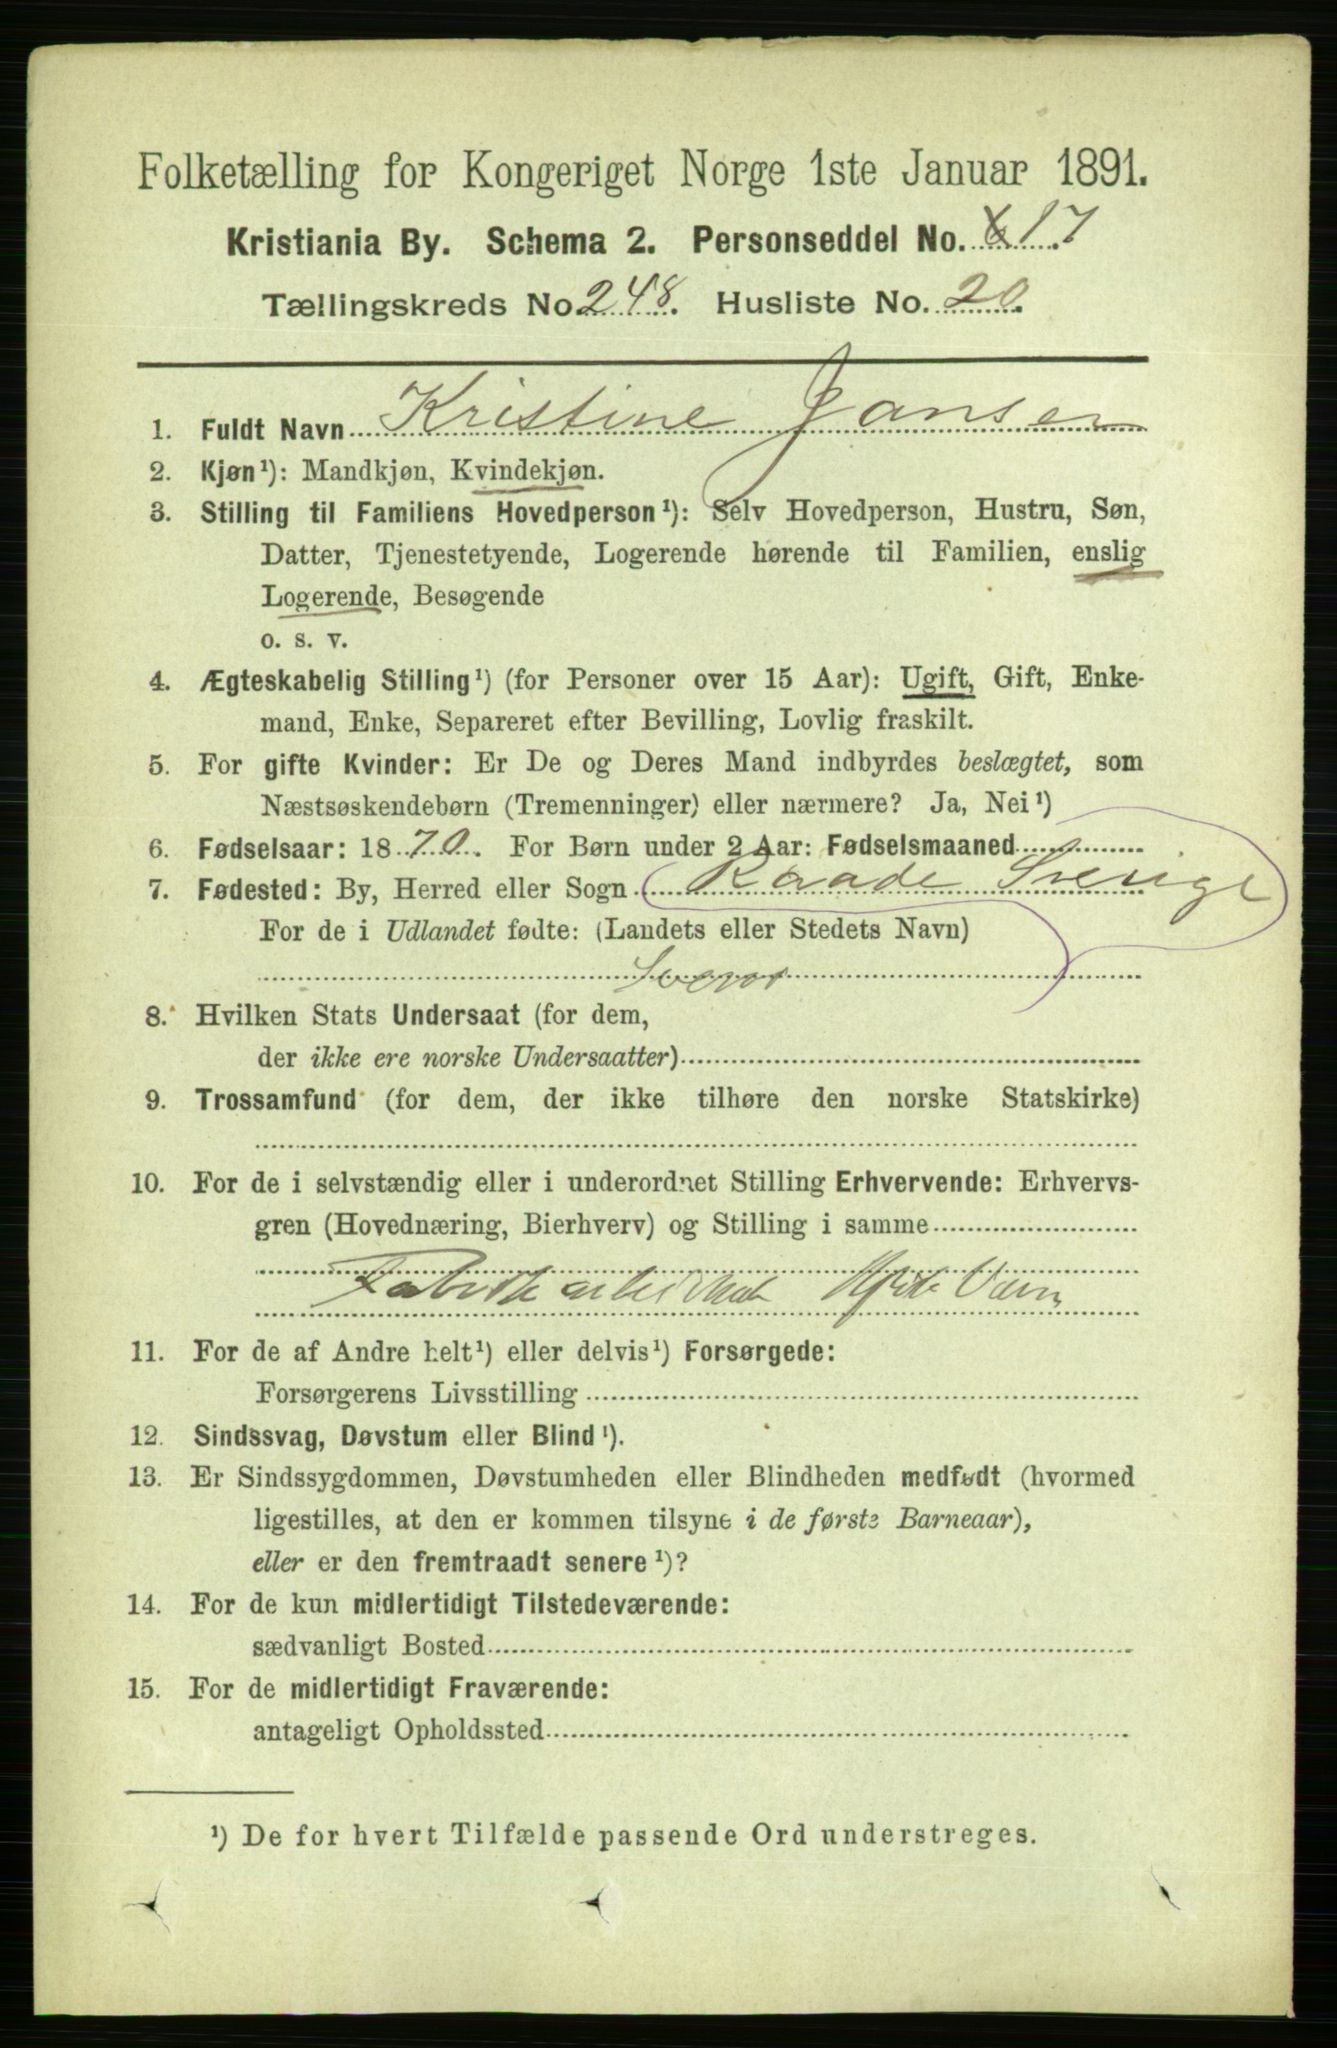 Folketælling for Kongeriget Norge 1ste Januar 1891.
Kristiania By. Schema 2. Personseddel No. 17
Tællingskreds No. 248. Husliste No. 20.
1. Fuldt Navn Kristine Jansen
2. Kjøn¹): Mandkjøn, Kvindekjøn.
3. Stilling til Familiens Hovedperson¹): Selv Hovedperson, Hustru, Søn,
Datter, Tjenestetyende, Logerende hørende til Familien, enslig
Logerende, Besøgende
o. s. v.
4. Ægteskabelig Stilling¹) (for Personer over 15 Aar): Ugift, Gift, Enke-
mand, Enke, Separeret efter Bevilling, Lovlig fraskilt.
5. For gifte Kvinder: Er De og Deres Mand indbyrdes beslægtet, som
Næstsøskendebørn (Tremenninger) eller nærmere? Ja, Nei¹)
6. Fødselsaar: 1870. For Børn under 2 Aar: Fødselsmaaned
7. Fødested: By, Herred eller Sogn Raade Sverige
For de i Udlandet fødte: (Landets eller Stedets Navn)
8. Hvilken Stats Undersaat (for dem,
der ikke ere norske Undersaatter)
9. Trossamfund (for dem, der ikke tilhøre den norske Statskirke)
10. For de i selvstændig eller i underordnet Stilling Erhvervende: Erhvervs-
gren (Hovednæring, Bierhverv) og Stilling i samme
11. For de af Andre helt¹) eller delvis¹) Forsørgede:
Forsørgerens Livsstilling
12. Sindssvag, Døvstum eller Blind¹).
13. Er Sindssygdommen, Døvstumheden eller Blindheden medfødt (hvormed
ligestilles, at den er kommen tilsyne i de første Barneaar),
eller er den fremtraadt senere¹)?
14. For de kun midlertidigt Tilstedeværende:
sædvanligt Bosted
15. For de midlertidigt Fraværende:
antageligt Opholdssted
¹) De for hvert Tilfælde passende Ord understreges.